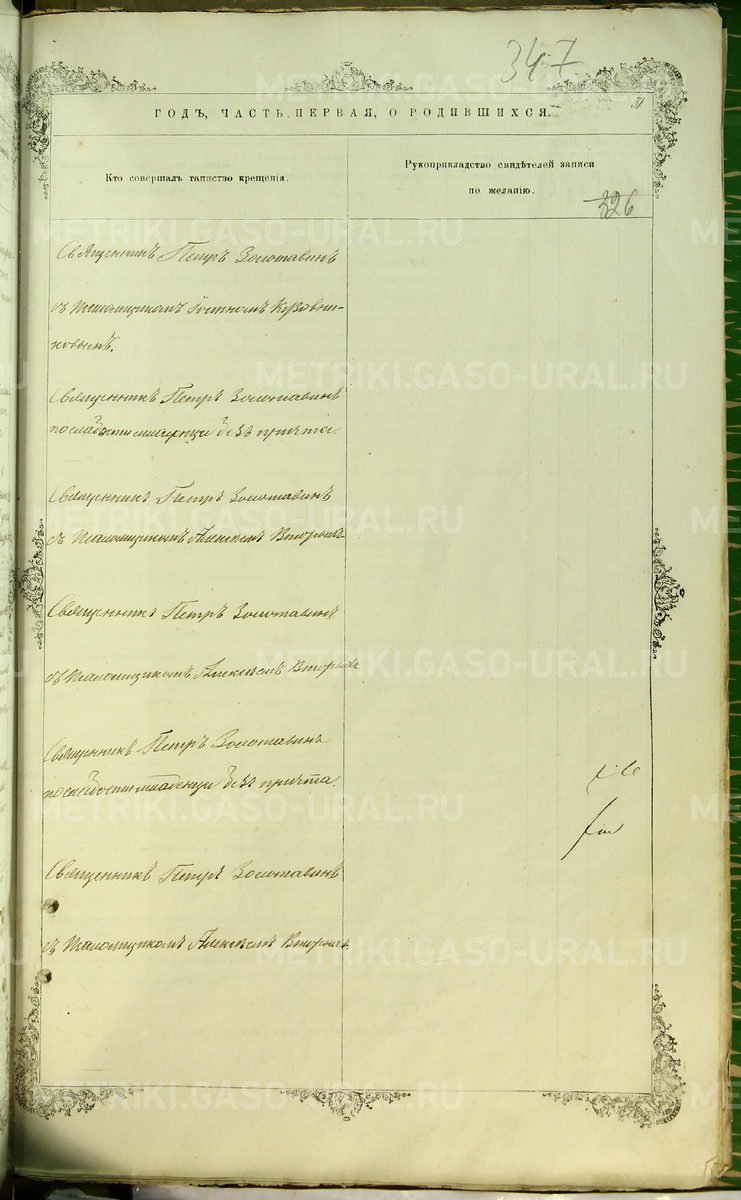 347
31
ГОДЪ, ЧАСТЬ ПЕРВАЯ, О РОДИВШИХСЯ.
Кто совершалъ таинство крещенія.
Рукоприкладство свидѣтелей записи
по желанію.
326
Священникъ Петръ Золотавинъ
съ
Священникъ Петръ Золотавинъ
по слабости младенца безъ причта.
Священникъ Петръ Золотавинъ
съ Псаломщикомъ Алексѣемъ Вторыхъ
Священникъ Петръ Золотавинъ
съ Псаломщикомъ Алексѣемъ Вторыхъ
Священникъ Петръ Золотавинъ
по слабости младенца безъ причта.
Священникъ Петръ Золотавинъ
съ Псаломщикомъ Алексѣемъ Вторыхъ
METRIKI.GASO-URAL.RU